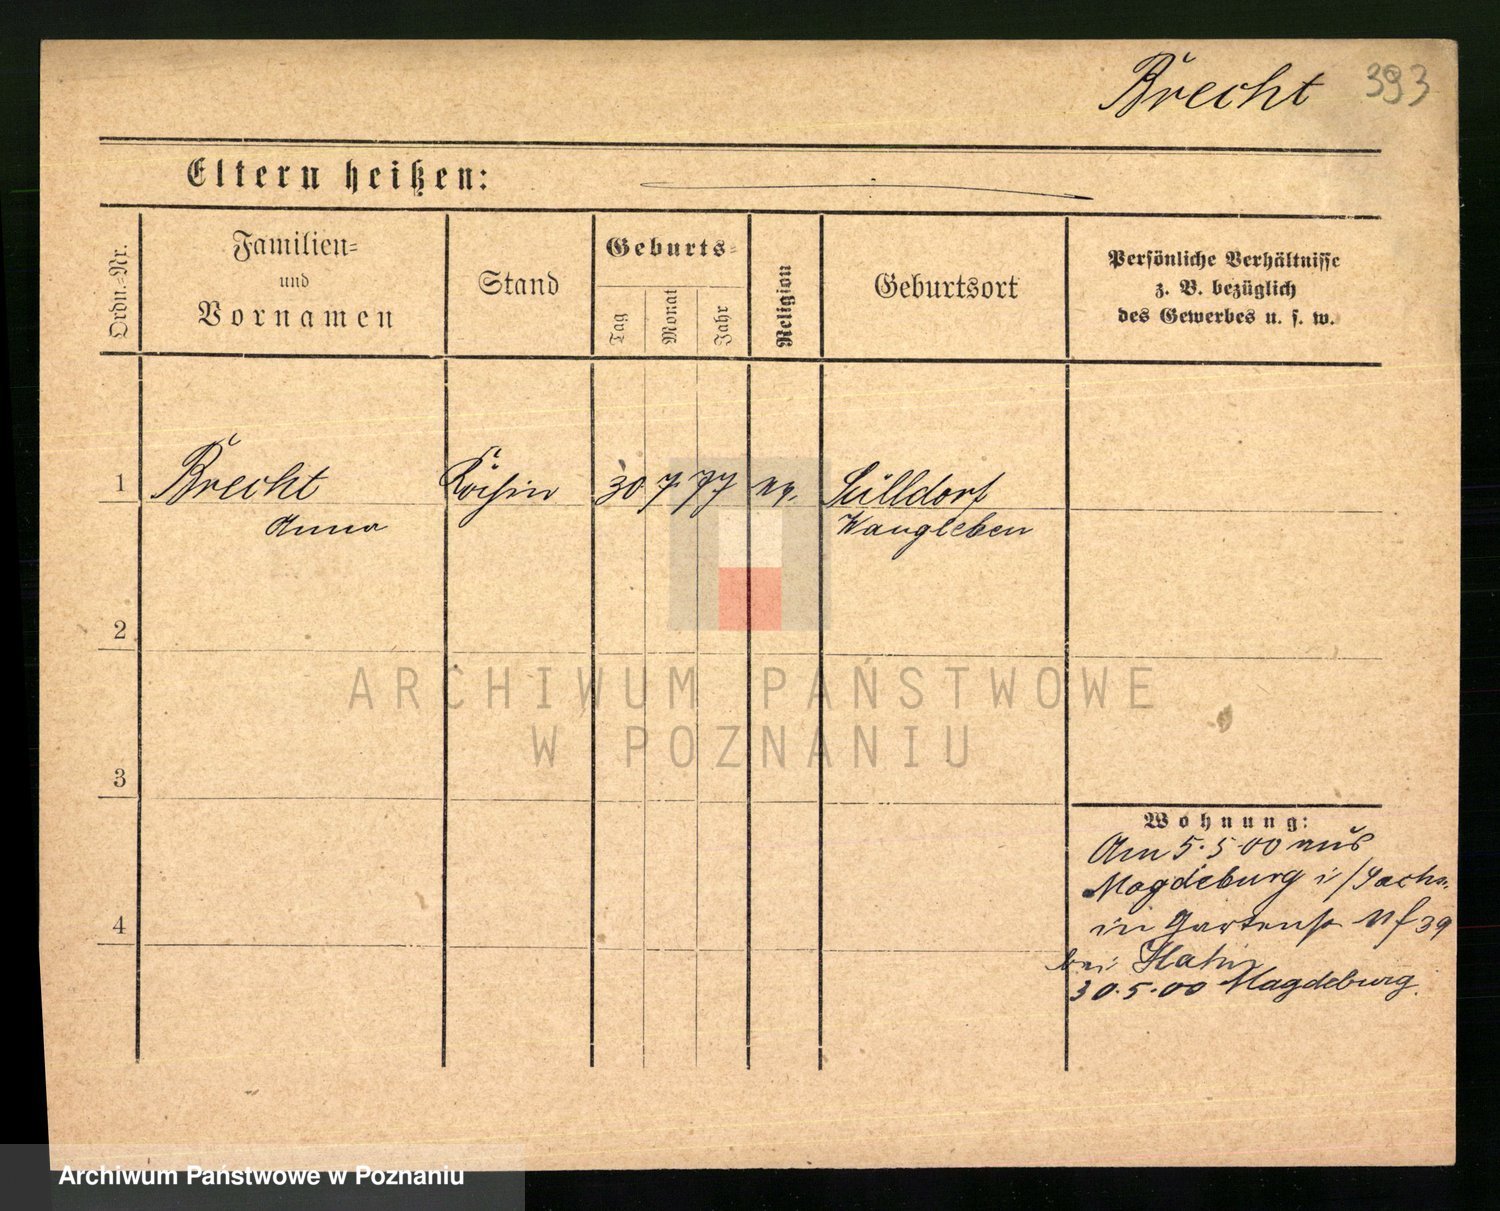 Brecht 393
Eltern heißen:
Ordn.-Nr.
Familien-
und
Vornamen
Stand
Geburts-
Tag
Monat
Jahr
Religion
Geburtsort
Persönliche Verhältnisse
z. B. bezüglich
des Gewerbes u. s. w.
1 Brecht Köchin 30 7 77 ev. Sülldorf
Anna Wanzleben
2
3
4
Wohnung:
Am 5.5.00 aus
Magdeburg i/Sachs.
in Gartenstr 39
bei Hahn
30.5.00 Magdeburg.
ARCHIWUM PAŃSTWOWE
W POZNANIU
Archiwum Państwowe w Poznaniu